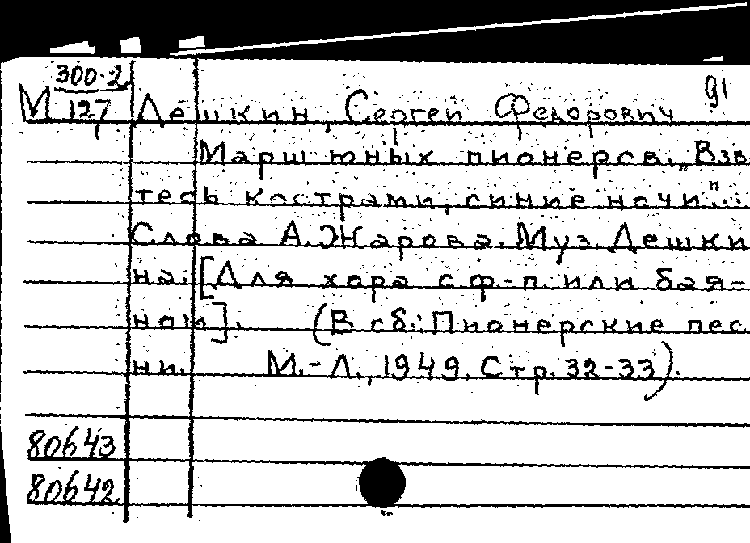 300-2
М 127
91
Дешкин, Сергей Федорович
Марш юных пионеров. „Взве
тесь кострами, синие ночи"...
Слова А. Жарова. Муз. Дешки
на. [Для хора с ф-п. или бая-
ном]. (В сб.: Пионерские пес
ни. М.-Л., 1949. Стр. 32-33).
80643
80642